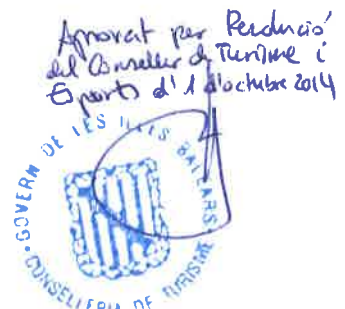 Aprovat per Resolució
del Conseller de Turisme i
Esports d'1 d'octubre 2014
GOVERN DE LES ILLES BALEARS
CONSELLERIA DE TURISME